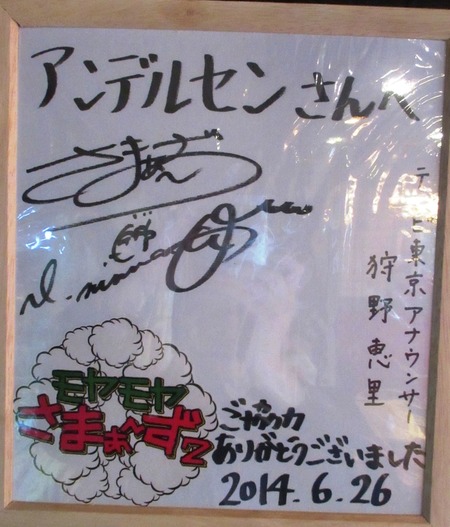 アンデルセンさんへ
さまぁ~ず
テレビ東京アナウンサー
狩野恵里
モヤモヤ
さまぁ~ず2
ご協力
ありがとうございました
2014.6.26